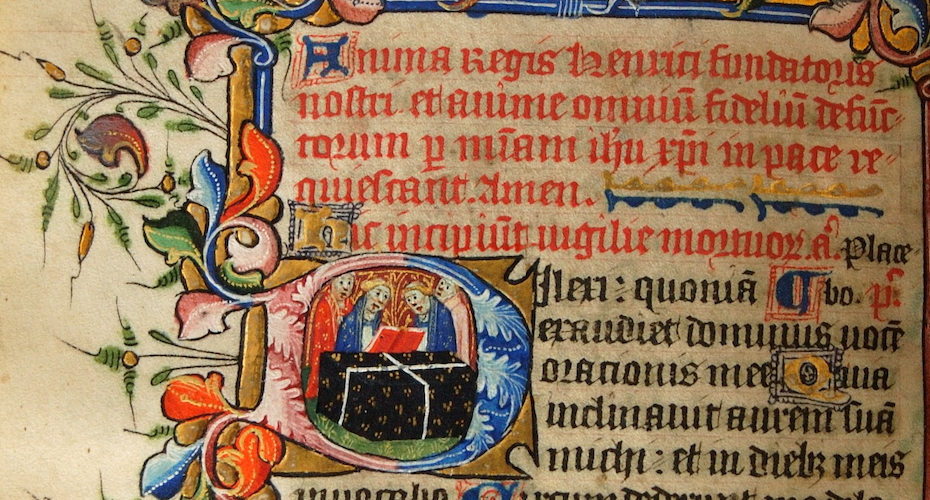 Anima Regis Henrici fundatoris
nostri et anime omniū fideliū defūc-
torum ꝑ mīam ihu xp̄i in pace re-
quiescant. Amen.
Hic incipiūt uigilie mortuoꝝ. a͛. Place-
Dilexi: quoniā ¶ bo. p͛.
exaudiet dominus uocē
orationis mee Quia
inclinauit aurem suā
michi: et in diebꝫ meis